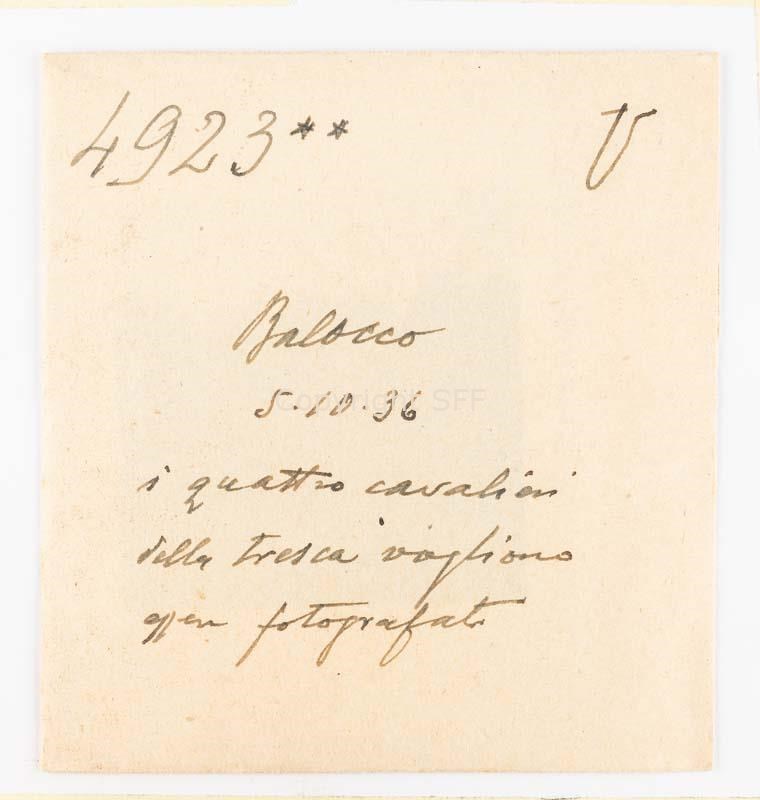 4923** V
Balocco
5.10.36
Copyright SFF
i quattro cavalieri
della tresca vogliono
essere fotografati